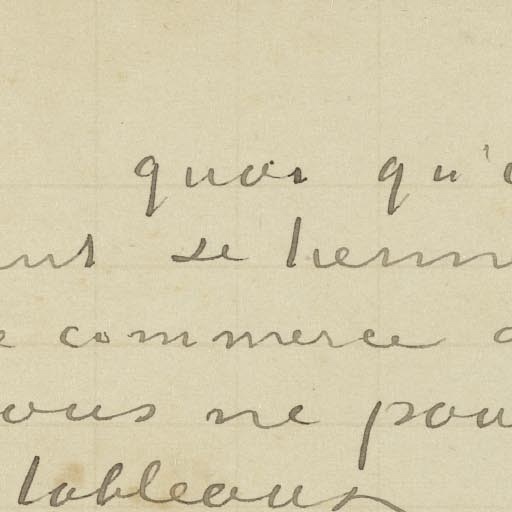 quoi qu'
se
commerce
ous ne pou
tableaux